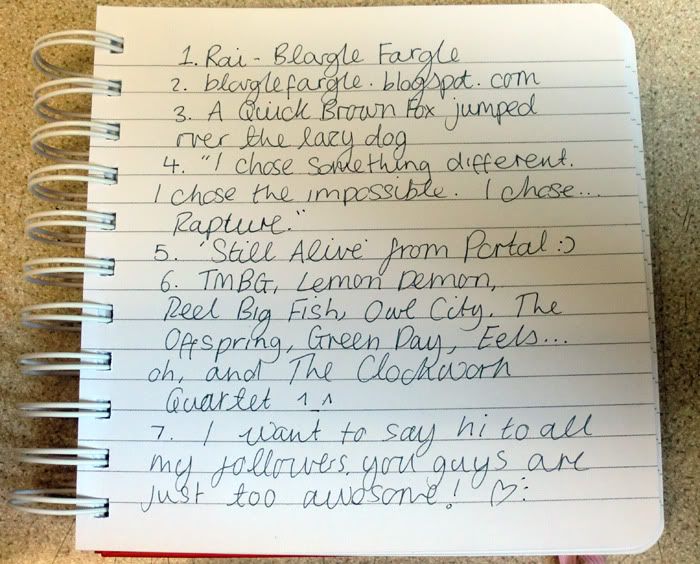 1. Rai - Blargle Fargle
2. blarglefargle.blogspot.com
3. A Quick Brown Fox jumped
over the lazy dog
4. "I chose something different.
I chose the impossible. I chose...
Rapture."
5. 'Still Alive' from Portal :)
6. TMBG, Lemon Demon,
Reel Big Fish, Owl City, The
Offspring, Green Day, Eels...
oh, and The Clockwork
Quartet ^_^
7. I want to say hi to all
my followers, you guys are
just too awesome! ♡: